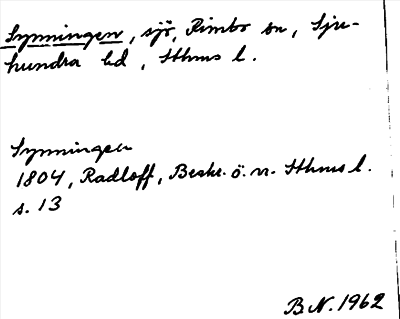 Synningen, sjö, Rimbo sn, Sju-
hundra hd, Sthms l.
Synningen
1804, Radloff, Beskr. ö. n. Sthms l.
s. 13
B N. 1962